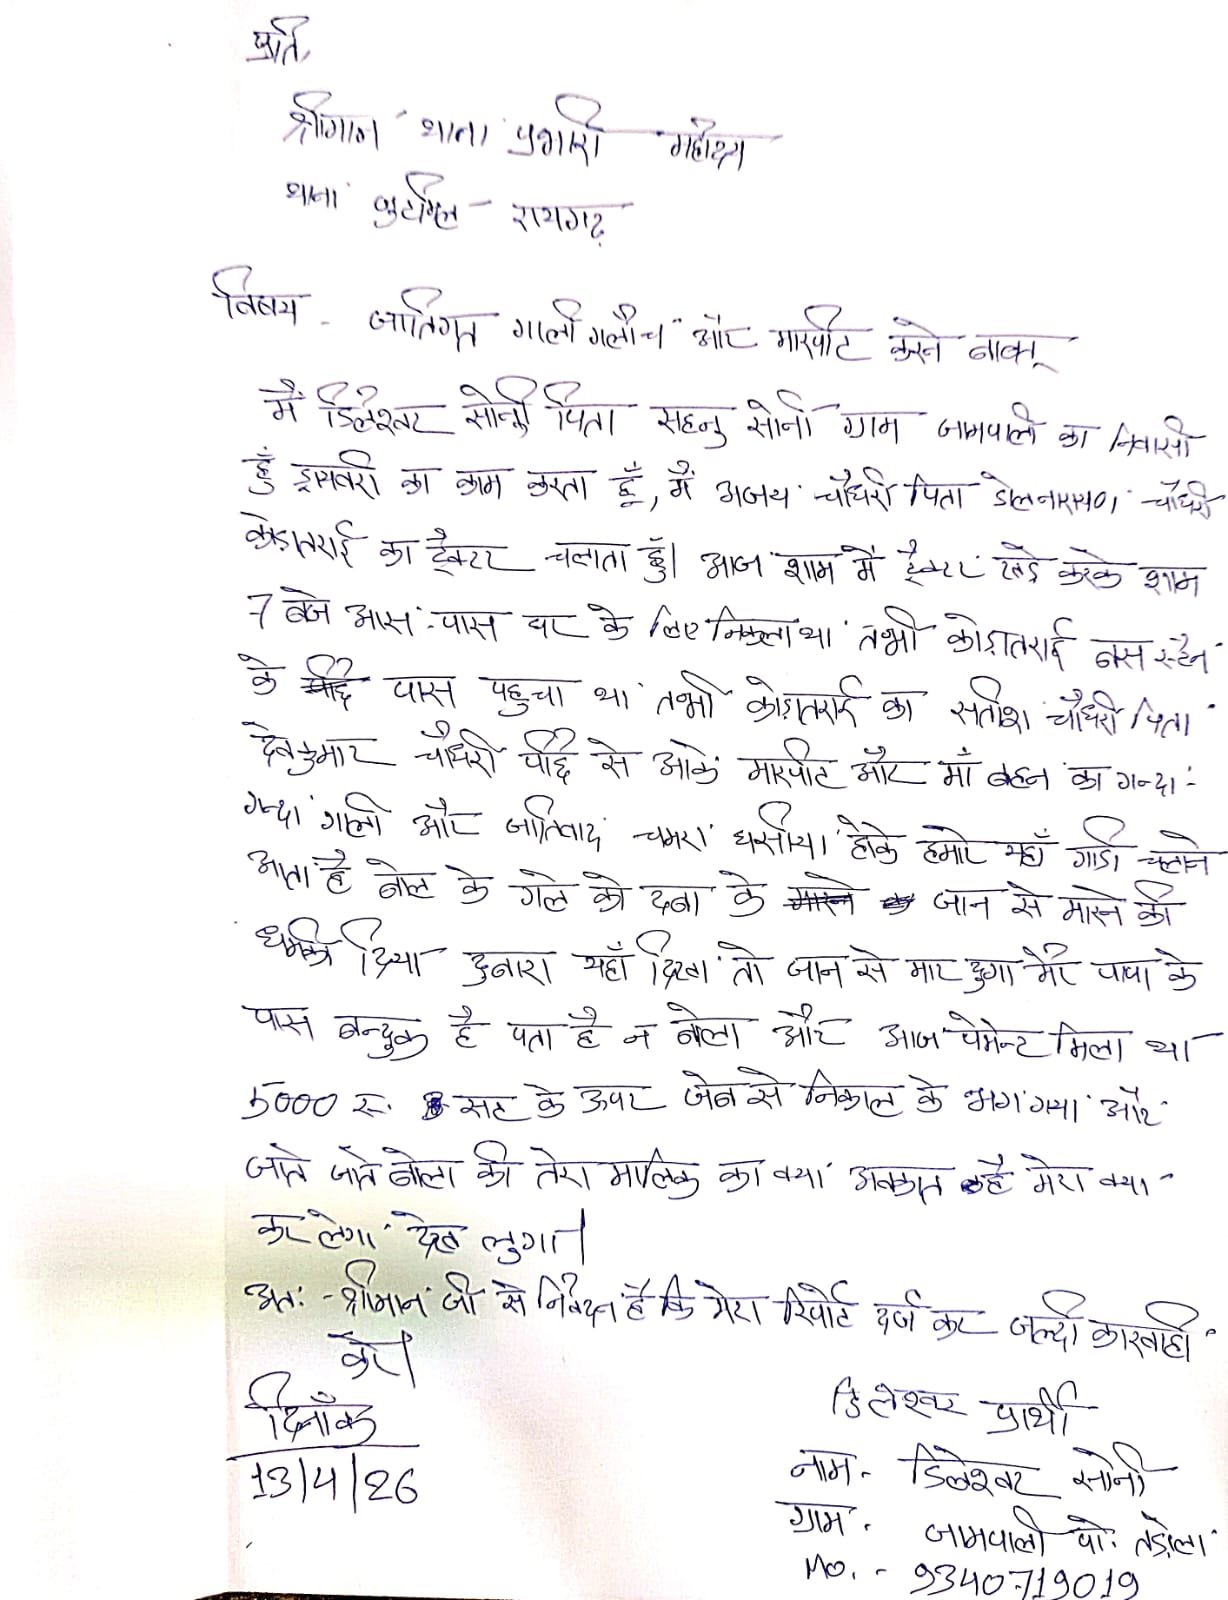 प्रति,
श्रीमान थाना प्रभारी महोदय
थाना जुटमिल - रायगढ़
विषय - जातिगत गाली गलौच और मारपीट करने बाबत्
मैं डिलेश्वर सोनी पिता सहनु सोनी ग्राम जामपाली का निवासी
हुँ ड्रायवरी का काम करता हूँ, मैं अजय चौधरी पिता डोलनारायण चौधरी
कोड़ातराई का ट्रैक्टर चलाता हुँ। आज शाम में ट्रैक्टर खड़े करके शाम
7 बजे आस-पास घर के लिए निकला था तभी कोड़ातराई बस स्टैन
के पास पहुचा था तभी कोड़ातराई का सतीश चौधरी पिता
देवकुमार चौधरी पीछे से आके मारपीट और माँ बहन का गन्दा-
गन्दा गाली और जातिवाद चमरा घसीया होके हमारे यहाँ गाडी चलाने
आता है बोल के गले को दबा के जान से मारने की
धमकी दिया दुबारा यहाँ दिखा तो जान से मार दुगा मेरे पापा के
पास बन्दुक है पता है न बोला और आज पेमेन्ट मिला था
5000 रु. सट के ऊपर जेब से निकाल के भग गया और
जाते जाते बोला की तेरा मालिक का क्या अवकात है मेरा क्या
कर लेगा देख लुगा।
अतः - श्रीमान जी से निवेदन है कि मेरा रिपोर्ट दर्ज कर जल्दी कारवाही
करे।
दिनाँक
13/4/26
डिलेश्वर प्रार्थी
नाम - डिलेश्वर सोनी
ग्राम - जामपाली पो. तड़ोला
Mo. - 9340719019